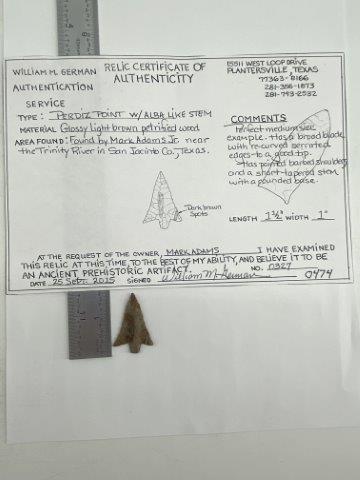 WILLIAM M. GERMAN
AUTHENTICATION
SERVICE
RELIC CERTIFICATE OF
AUTHENTICITY
15511 WEST LOOP DRIVE
PLANTERSVILLE, TEXAS
77363-8166
281-356-1873
281-793-2532
TYPE : PERDIZ POINT W/ ALBA LIKE STEM
MATERIAL Glossy light brown petrified wood
AREA FOUND: Found by Mark Adams Jr. near
the Trinity River in San Jacinto Co., Texas.
COMMENTS
Perfect medium size
example. Has a broad blade
with re-curved serrated
edges to a good tip.
Has pointed barbed shoulders
and a short tapered stem
with a rounded base.
Dark brown
Spots
LENGTH 1½" WIDTH 1"
AT THE REQUEST OF THE OWNER, MARK ADAMS I HAVE EXAMINED
THIS RELIC AT THIS TIME, TO THE BEST OF MY ABILITY, AND BELIEVE IT TO BE
AN ANCIENT PREHISTORIC ARTIFACT. NO. 0327
DATE 25 Sept. 2015 SIGNED William M. German 0474